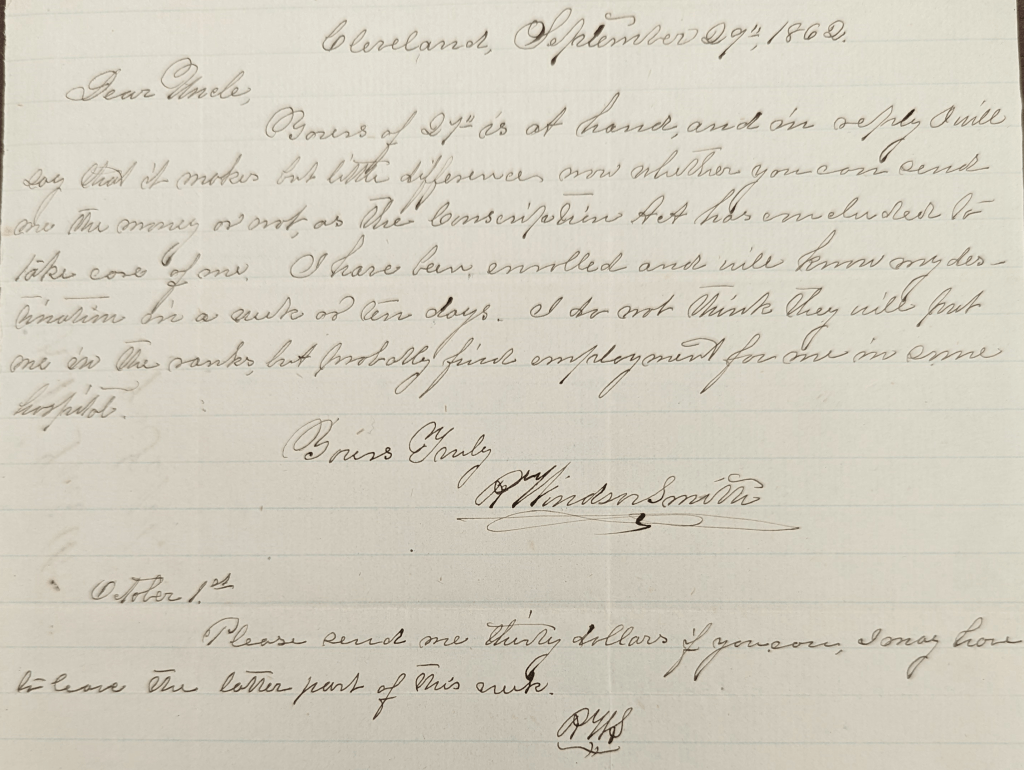 Cleveland, September 29", 1862.
Dear Uncle,
Yours of 27" is at hand, and in reply I will
say that it makes but little difference now whether you can send
me the money or not, as the Conscription Act has concluded to
take care of me. I have been enrolled and will know my des-
tination in a week or ten days. I do not think they will put
me in the ranks, but probably find employment for me in some
hospital.
Yours Truly
R Windsor Smith
October 1.st
Please send me thirty dollars if you can, I may have
to leave the latter part of this week.
RWS